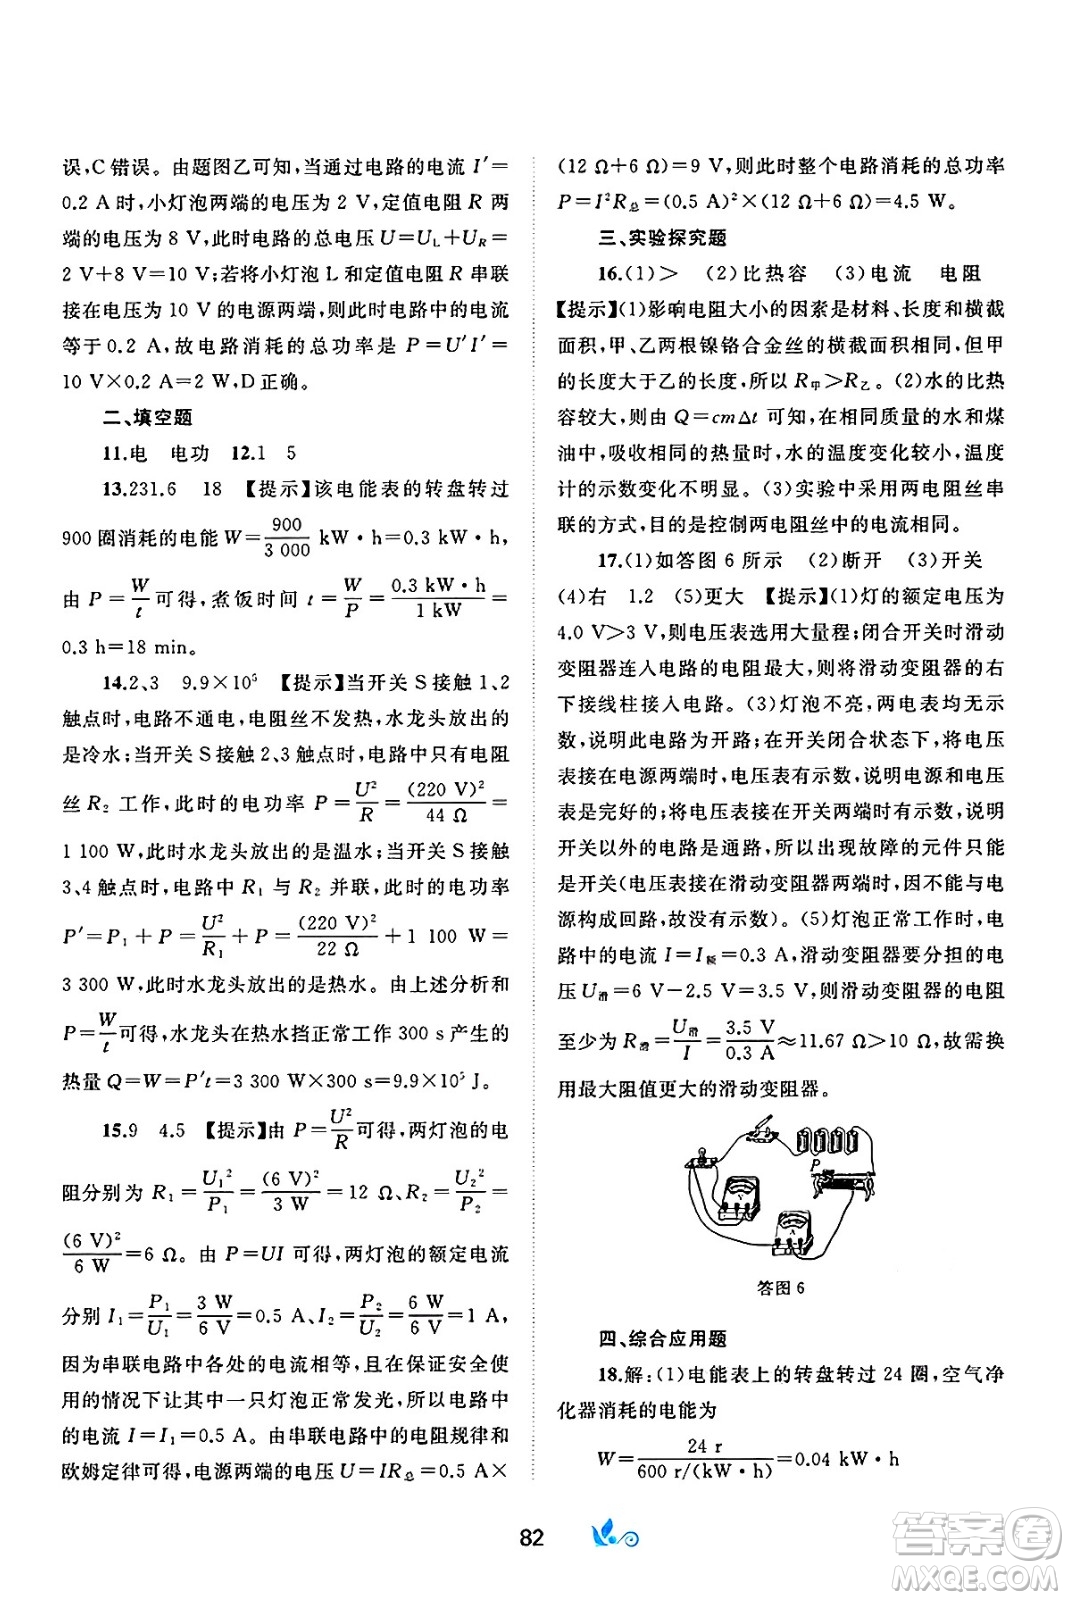 误,C错误。由题图乙可知,当通过电路的电流 I′＝
0.2 A时,小灯泡两端的电压为 2 V,定值电阻 R 两
端的电压为 8 V,此时电路的总电压 U＝U_L＋U_R＝
2 V＋8 V＝10 V;若将小灯泡 L 和定值电阻 R 串联
接在电压为 10 V 的电源两端,则此时电路中的电流
等于 0.2 A,故电路消耗的总功率是 P＝U′I′＝
10 V×0.2 A＝2 W,D正确。
二、填空题
11.电　电功　12.1　5
13.231.6　18　【提示】该电能表的转盘转过
900 圈消耗的电能 W＝900/3 000 kW·h＝0.3 kW·h,
由 P＝W/t 可得,煮饭时间 t＝W/P＝0.3 kW·h/1 kW＝
0.3 h＝18 min。
14.2、3　9.9×10⁵　【提示】当开关 S 接触 1、2
触点时,电路不通电,电阻丝不发热,水龙头放出的
是冷水;当开关 S 接触 2、3 触点时,电路中只有电阻
丝 R₂ 工作,此时的电功率 P＝U²/R＝(220 V)²/44 Ω＝
1 100 W,此时水龙头放出的是温水;当开关 S 接触
3、4 触点时,电路中 R₁ 与 R₂ 并联,此时的电功率
P′＝P₁＋P＝U²/R₁＋P＝(220 V)²/22 Ω＋1 100 W＝
3 300 W,此时水龙头放出的是热水。由上述分析和
P＝W/t 可得,水龙头在热水挡正常工作 300 s 产生的
热量 Q＝W＝P′t＝3 300 W×300 s＝9.9×10⁵ J。
15.9　4.5　【提示】由 P＝U²/R 可得,两灯泡的电
阻分别为 R₁＝U₁²/P₁＝(6 V)²/3 W＝12 Ω、R₂＝U₂²/P₂＝
(6 V)²/6 W＝6 Ω。由 P＝UI 可得,两灯泡的额定电流
分别 I₁＝P₁/U₁＝3 W/6 V＝0.5 A、I₂＝P₂/U₂＝6 W/6 V＝1 A。
因为串联电路中各处的电流相等,且在保证安全使
用的情况下让其中一只灯泡正常发光,所以电路中
的电流 I＝I₁＝0.5 A。由串联电路中的电阻规律和
欧姆定律可得,电源两端的电压 U＝IR总＝0.5 A×
(12 Ω＋6 Ω)＝9 V,则此时整个电路消耗的总功率
P＝I²R总＝(0.5 A)²×(12 Ω＋6 Ω)＝4.5 W。
三、实验探究题
16.(1)＞　(2)比热容　(3)电流　电阻
【提示】(1)影响电阻大小的因素是材料、长度和横截
面积,甲、乙两根镍铬合金丝的横截面积相同,但甲
的长度大于乙的长度,所以 R甲＞R乙。(2)水的比热
容较大,则由 Q＝cmΔt 可知,在相同质量的水和煤
油中,吸收相同的热量时,水的温度变化较小,温度
计的示数变化不明显。(3)实验中采用两电阻丝串
联的方式,目的是控制两电阻丝中的电流相同。
17.(1)如答图 6 所示　(2)断开　(3)开关
(4)右　1.2　(5)更大　【提示】(1)灯的额定电压为
4.0 V＞3 V,则电压表选用大量程;闭合开关时滑动
变阻器连入电路的电阻最大,则将滑动变阻器的右
下接线柱接入电路。(3)灯泡不亮,两电表均无示
数,说明此电路为开路;在开关闭合状态下,将电压
表接在电源两端时,电压表有示数,说明电源和电压
表是完好的;将电压表接在开关两端时有示数,说明
开关以外的电路是通路,所以出现故障的元件只能
是开关(电压表接在滑动变阻器两端时,不能与电
源构成回路,故没有示数)。(5)灯泡正常工作时,
电路中的电流 I＝I额＝0.3 A,滑动变阻器要分担的电
压 U滑＝6 V－2.5 V＝3.5 V,则滑动变阻器的电阻
至少为 R滑＝U滑/I＝3.5 V/0.3 A≈11.67 Ω＞10 Ω,故需换
用最大阻值更大的滑动变阻器。
P
答图 6
四、综合应用题
18.解:(1)电能表上的转盘转过 24 圈,空气净
化器消耗的电能为
W＝24 r/600 r/(kW·h)＝0.04 kW·h
82
答案圈
MXQE.COM